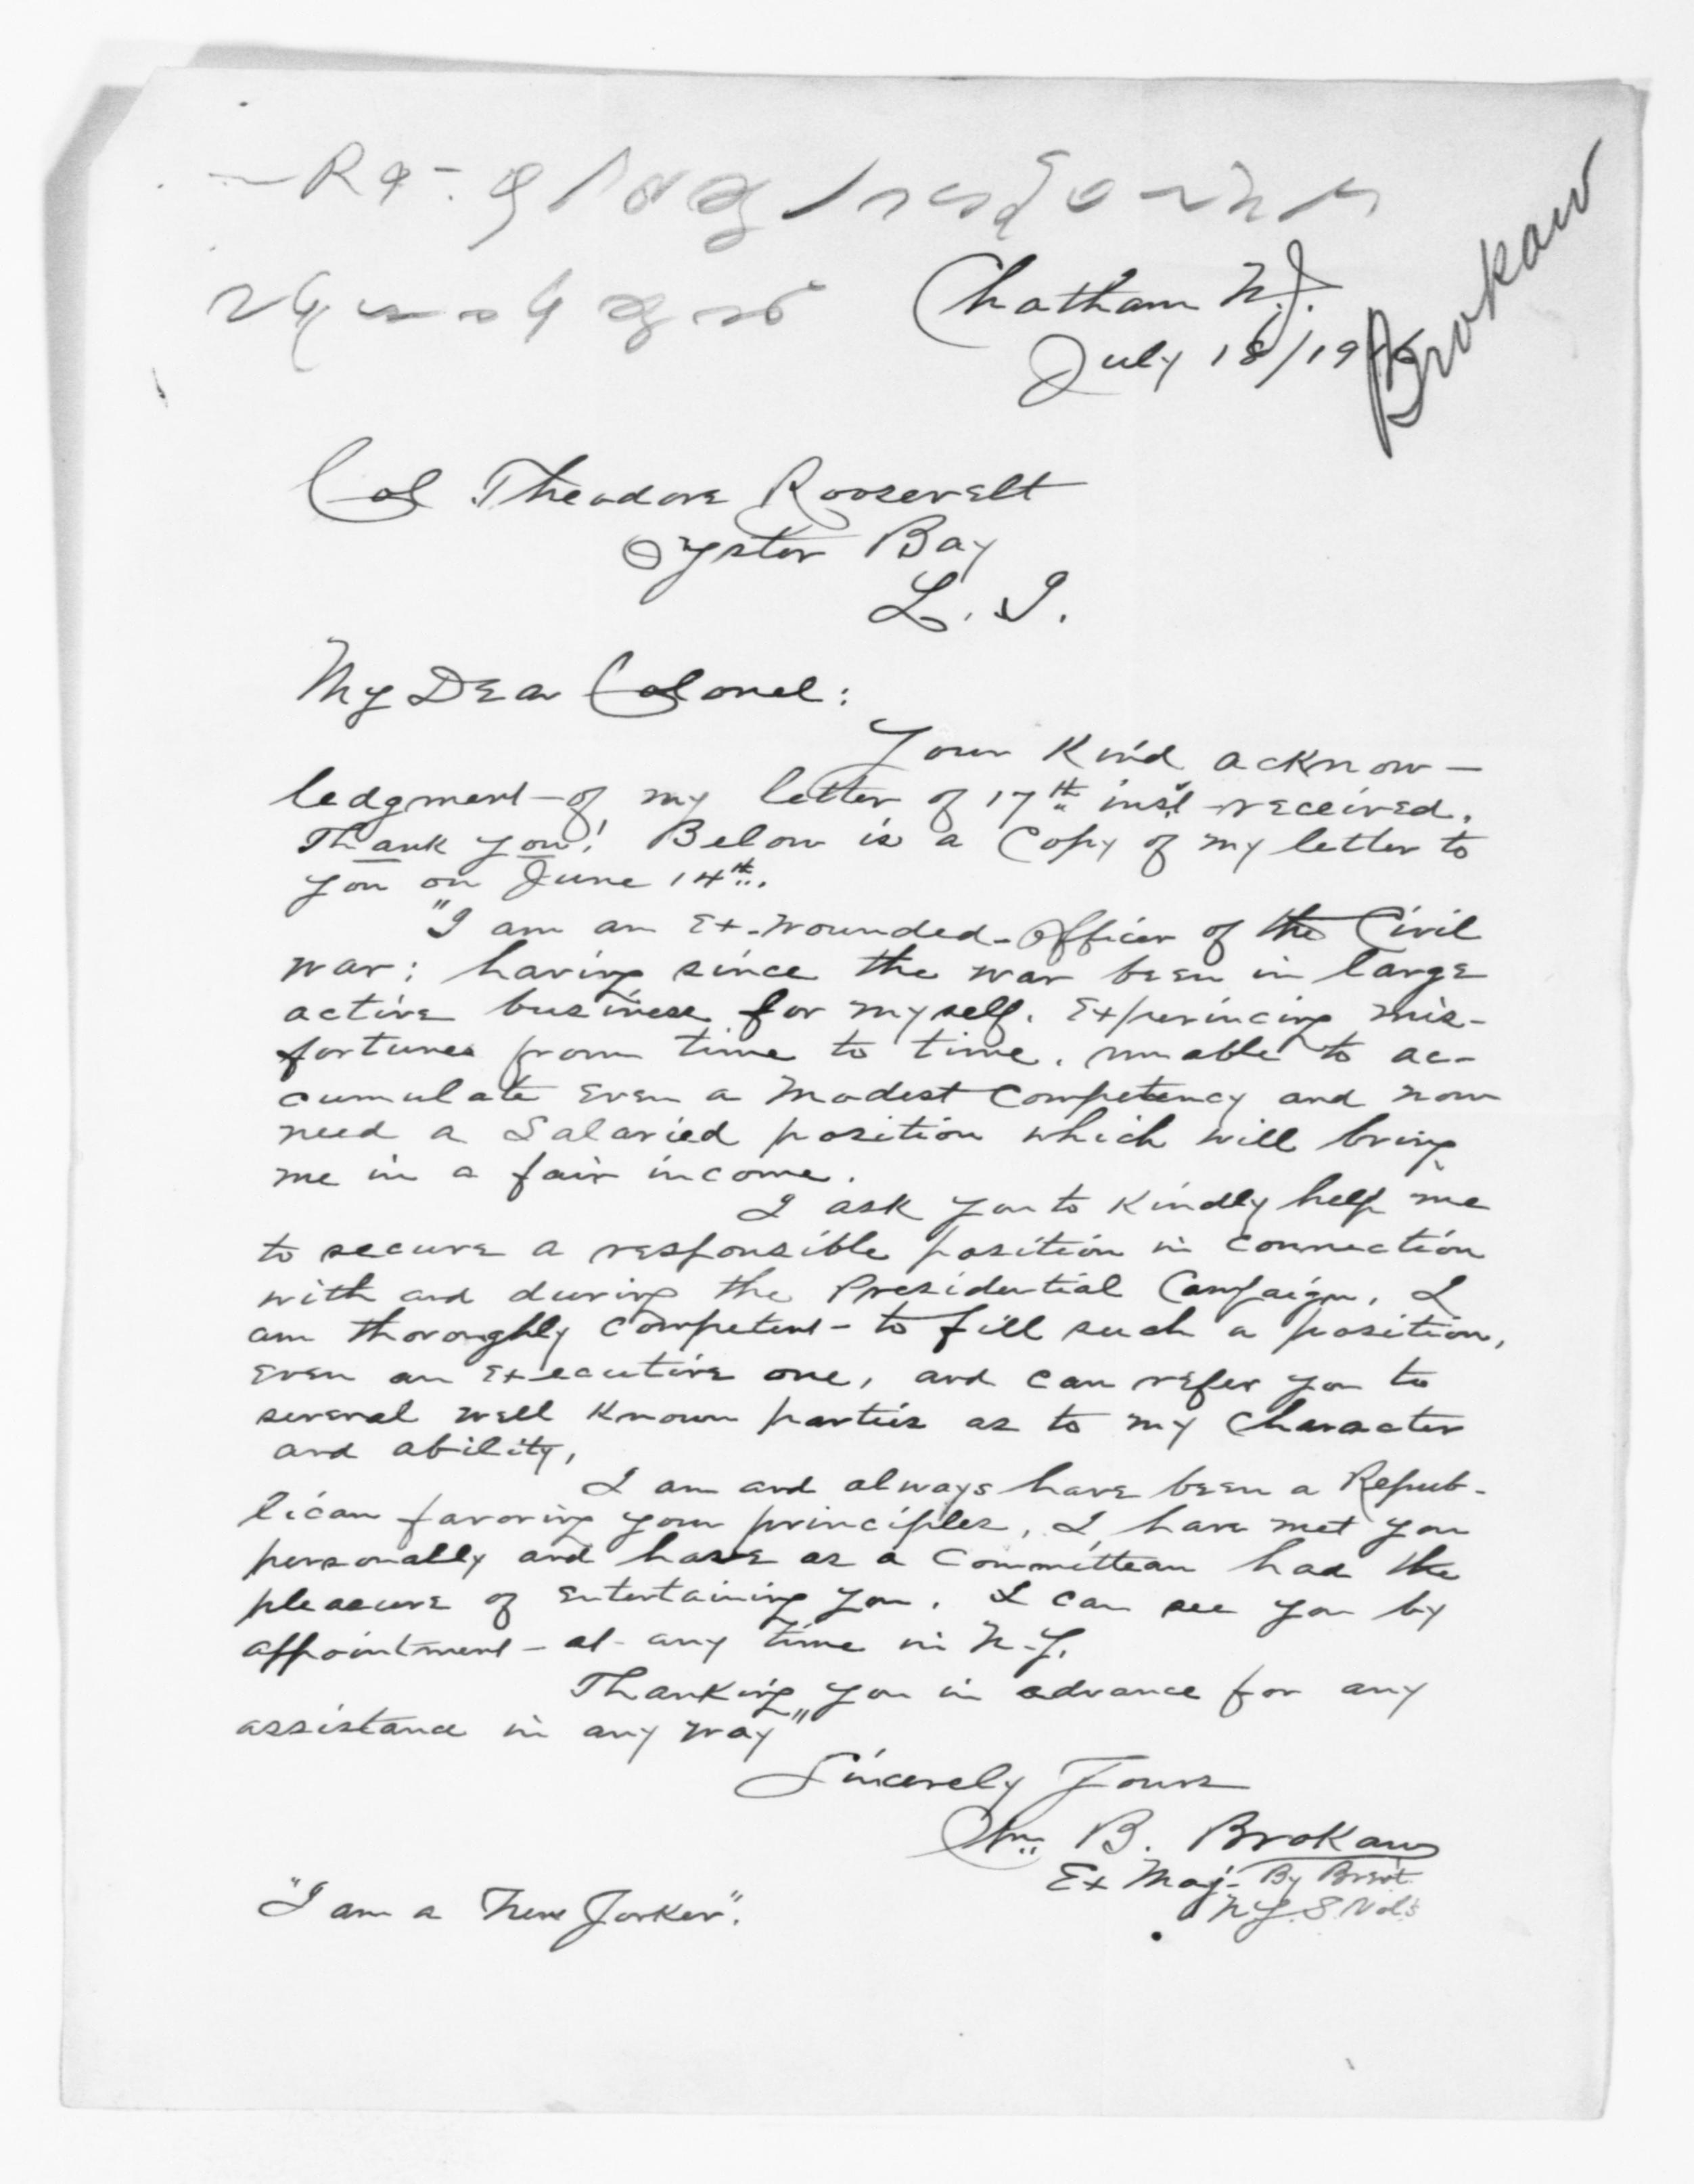 Brokaw
Chatham N.J.
July 18/1916
Col Theodore Roosevelt
Oyster Bay
L. I.
My Dear Colonel:
Your Kind acknow-
ledgment of my letter of 17th inst received.
Thank you! Below is a Copy of my letter to
you on June 14th.
"I am an Ex-wounded-Officer of the Civil
war; having since the war been in large
active business for myself. Experincing mis-
fortunes from time to time, unable to ac-
cumulate Even a Modest Competency and now
need a Salaried position which will bring
me in a fair income.
I ask you to Kindly help me
to secure a responsible position in Connection
with and during the Presidential Campaign. I
am thoroughly Competent to fill such a position,
Even an Executive one, and can refer you to
several well Known parties as to my Character
and ability,
I am and always have been a Repub-
lican favoring your principles, I have met you
personally and have as a Committean had the
pleasure of Entertaining you. I can see you by
appointment - at any time in N.Y.
Thanking you in advance for any
assistance in any way"
Sincerely Yours
Wm. B. Brokaw
Ex Maj- By Brevt.
N.Y.S. Vols
"I am a New Yorker".